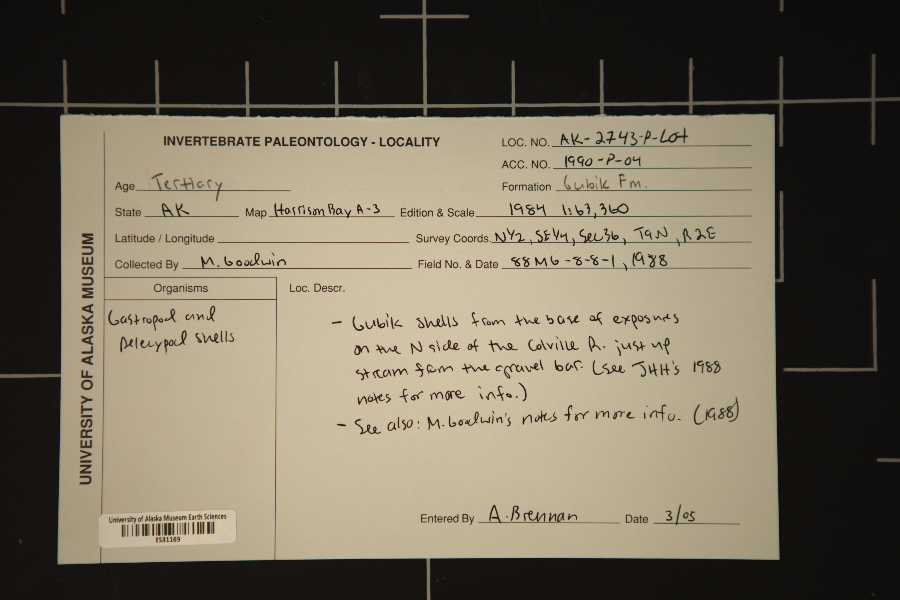 INVERTEBRATE PALEONTOLOGY - LOCALITY
LOC. NO. AK-2743-P-Lot
ACC. NO. 1990-P-04
Age Tertiary
Formation Gubik Fm.
State AK Map Harrison Bay A-3 Edition & Scale 1984 1:63,360
Latitude / Longitude Survey Coords. N1/2, SE1/4, Sec36, T9N, R2E
Collected By M. Goodwin Field No. & Date 88MG-8-8-1, 1988
Organisms
Loc. Descr.
Gastropod and
Pelecypod shells
- Gubik shells from the base of exposures
on the N side of the Colville R. just up
stream from the gravel bar. (see JHH's 1988
notes for more info.)
- See also: M. Goodwin's notes for more info. (1988)
UNIVERSITY OF ALASKA MUSEUM
University of Alaska Museum Earth Sciences
ES81169
Entered By A. Brennan Date 3/05